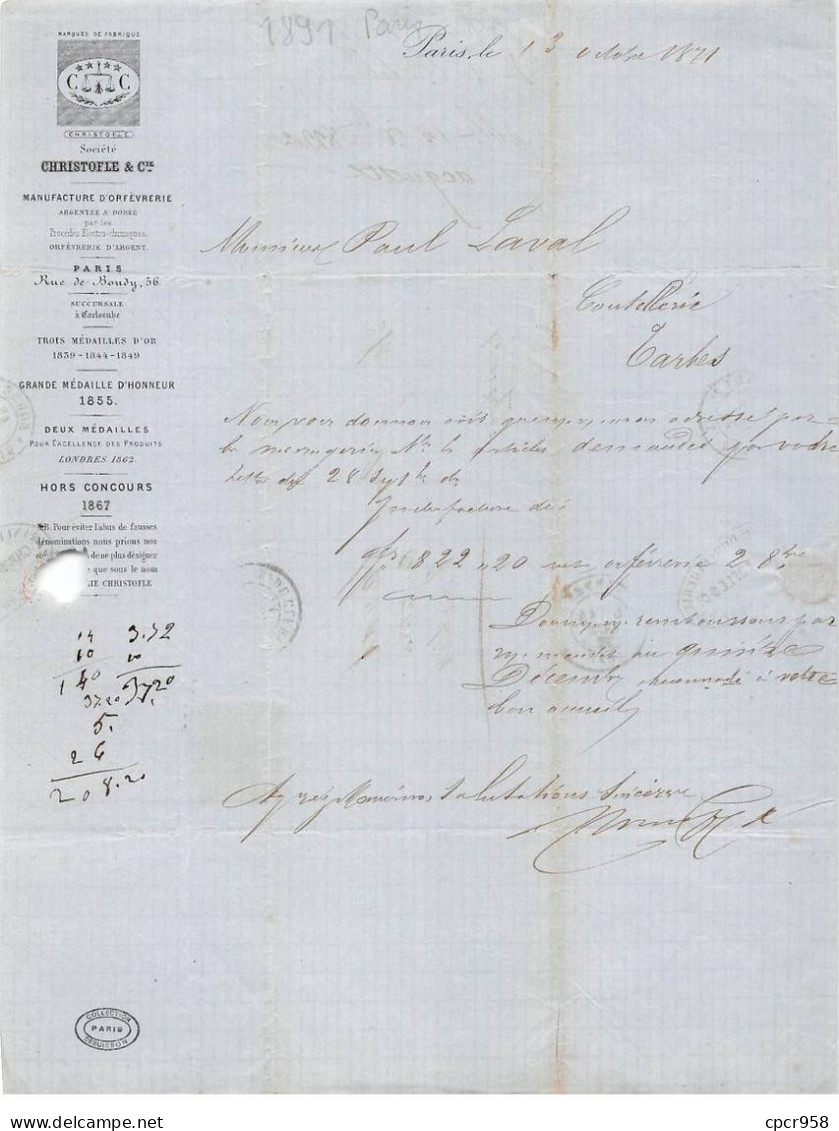 1891 Paris
MARQUES DE FABRIQUE
C C
CHRISTOFLE
Société
CHRISTOFLE & Cie
MANUFACTURE D'ORFÈVRERIE
ARGENTÉE & DORÉE
par les
Procédés Electro-chimiques.
ORFÈVRERIE D'ARGENT.
PARIS
Rue de Bondy, 56
SUCCURSALE
à Carlsruhe
TROIS MÉDAILLES D'OR
1839-1844-1849
GRANDE MÉDAILLE D'HONNEUR
1855.
DEUX MÉDAILLES
POUR L'EXCELLENCE DES PRODUITS
LONDRES 1862.
HORS CONCOURS
1867
NB. Pour éviter l'abus de fausses
dénominations nous prions nos
de ne plus désigner
que sous le nom
CHRISTOFLE
Paris, le 13 octobre 1871
Monsieur Paul Laval
Coutellerie
Tarbes
Nous vous donnons avis que nous adressé par
la messagerie les articles demandés par votre
lettre du 28
facture de
822,20
remboursons par
au quinze
Décembre recommandé à votre
bon accueil
Salutations Sincères
14 3.72
10 10
140 37.20
37.20
5.
26
208.20
COLLECTION
PARIS
DEBUISSON
cpcr958